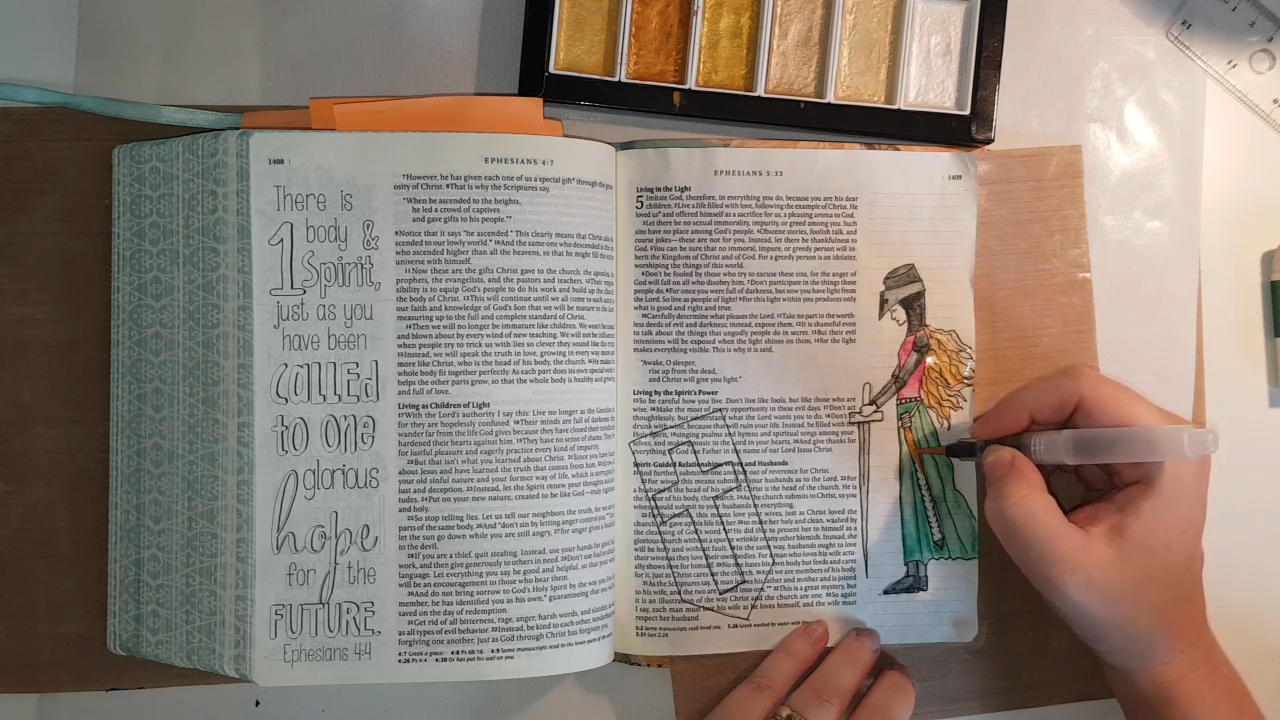 1408
EPHESIANS 4:7
There is
1 body &
Spirit,
just as you
have been
CALLED
to one
glorious
hope
for the
FUTURE.
Ephesians 4:4
7However, he has given each one of us a special gift* through the
osity of Christ. 8That is why the Scriptures say,
"When he ascended to the heights,
he led a crowd of captives
and gave gifts to his people."*
9Notice that it says "he ascended." This clearly means that Christ also
scended to our lowly world.* 10And the same one who descended is the
who ascended higher than all the heavens, so that he might fill the
universe with himself.
11Now these are the gifts Christ gave to the church: the apostles,
prophets, the evangelists, and the pastors and teachers. 12Their
sibility is to equip God's people to do his work and build up the church,
the body of Christ. 13This will continue until we all come to such
our faith and knowledge of God's Son that we will be mature in the
measuring up to the full and complete standard of Christ.
14Then we will no longer be immature like children. We won't be
and blown about by every wind of new teaching. We will not be
when people try to trick us with lies so clever they sound like the
15Instead, we will speak the truth in love, growing in every way
more like Christ, who is the head of his body, the church. 16He makes
whole body fit together perfectly. As each part does its own special
helps the other parts grow, so that the whole body is healthy and
and full of love.
Living as Children of Light
17With the Lord's authority I say this: Live no longer as the
for they are hopelessly confused. 18Their minds are full of
wander far from the life God gives because they have closed their minds
hardened their hearts against him. 19They have no sense of shame. They
for lustful pleasure and eagerly practice every kind of impurity.
20But that isn't what you learned about Christ. 21Since you have
about Jesus and have learned the truth that comes from him, 22throw
your old sinful nature and your former way of life, which is
lust and deception. 23Instead, let the Spirit renew your thoughts and
tudes. 24Put on your new nature, created to be like God—truly
and holy.
25So stop telling lies. Let us tell our neighbors the truth, for we are
parts of the same body. 26And "don't sin by letting anger control you."
let the sun go down while you are still angry, 27for anger gives a
to the devil.
28If you are a thief, quit stealing. Instead, use your hands for good
work, and then give generously to others in need. 29Don't use
language. Let everything you say be good and helpful, so that
will be an encouragement to those who hear them.
30And do not bring sorrow to God's Holy Spirit by the way you
member, he has identified you as his own,* guaranteeing that you
saved on the day of redemption.
31Get rid of all bitterness, rage, anger, harsh words, and slander,
as all types of evil behavior. 32Instead, be kind to each other,
forgiving one another, just as God through Christ has forgiven
4:7 Greek a grace. 4:8 Ps 68:18. 4:9 Some manuscripts read to the lower parts of the
4:26 Ps 4:4. 4:30 Or has put his seal on you.
EPHESIANS 5:33
1409
Living in the Light
5 Imitate God, therefore, in everything you do, because you are his dear
children. 2Live a life filled with love, following the example of Christ. He
loved us* and offered himself as a sacrifice for us, a pleasing aroma to God.
3Let there be no sexual immorality, impurity, or greed among you. Such
sins have no place among God's people. 4Obscene stories, foolish talk, and
coarse jokes—these are not for you. Instead, let there be thankfulness to
God. 5You can be sure that no immoral, impure, or greedy person will in-
herit the Kingdom of Christ and of God. For a greedy person is an idolater,
worshiping the things of this world.
6Don't be fooled by those who try to excuse these sins, for the anger of
God will fall on all who disobey him. 7Don't participate in the things these
people do. 8For once you were full of darkness, but now you have light from
the Lord. So live as people of light! 9For this light within you produces only
what is good and right and true.
10Carefully determine what pleases the Lord. 11Take no part in the worth-
less deeds of evil and darkness; instead, expose them. 12It is shameful even
to talk about the things that ungodly people do in secret. 13But their evil
intentions will be exposed when the light shines on them, 14for the light
makes everything visible. This is why it is said,
"Awake, O sleeper,
rise up from the dead,
and Christ will give you light."
Living by the Spirit's Power
15So be careful how you live. Don't live like fools, but like those who are
wise. 16Make the most of every opportunity in these evil days. 17Don't act
thoughtlessly, but understand what the Lord wants you to do. 18Don't be
drunk with wine, because that will ruin your life. Instead, be filled with the
Holy Spirit, 19singing psalms and hymns and spiritual songs among your-
selves, and making music to the Lord in your hearts. 20And give thanks for
everything to God the Father in the name of our Lord Jesus Christ.
Spirit-Guided Relationships: Wives and Husbands
21And further, submit to one another out of reverence for Christ.
22For wives, this means submit to your husbands as to the Lord. 23For
a husband is the head of his wife as Christ is the head of the church. He is
the Savior of his body, the church. 24As the church submits to Christ, so you
wives should submit to your husbands in everything.
25For husbands, this means love your wives, just as Christ loved the
church. He gave up his life for her 26to make her holy and clean, washed by
the cleansing of God's word.* 27He did this to present her to himself as a
glorious church without a spot or wrinkle or any other blemish. Instead, she
will be holy and without fault. 28In the same way, husbands ought to love
their wives as they love their own bodies. For a man who loves his wife actu-
ally shows love for himself. 29No one hates his own body but feeds and cares
for it, just as Christ cares for the church. 30And we are members of his body.
31As the Scriptures say, "A man leaves his father and mother and is joined
to his wife, and the two are united into one."* 32This is a great mystery, but
it is an illustration of the way Christ and the church are one. 33So again
I say, each man must love his wife as he loves himself, and the wife must
respect her husband.
5:2 Some manuscripts read loved you. 5:26 Greek washed by water with
5:31 Gen 2:24.